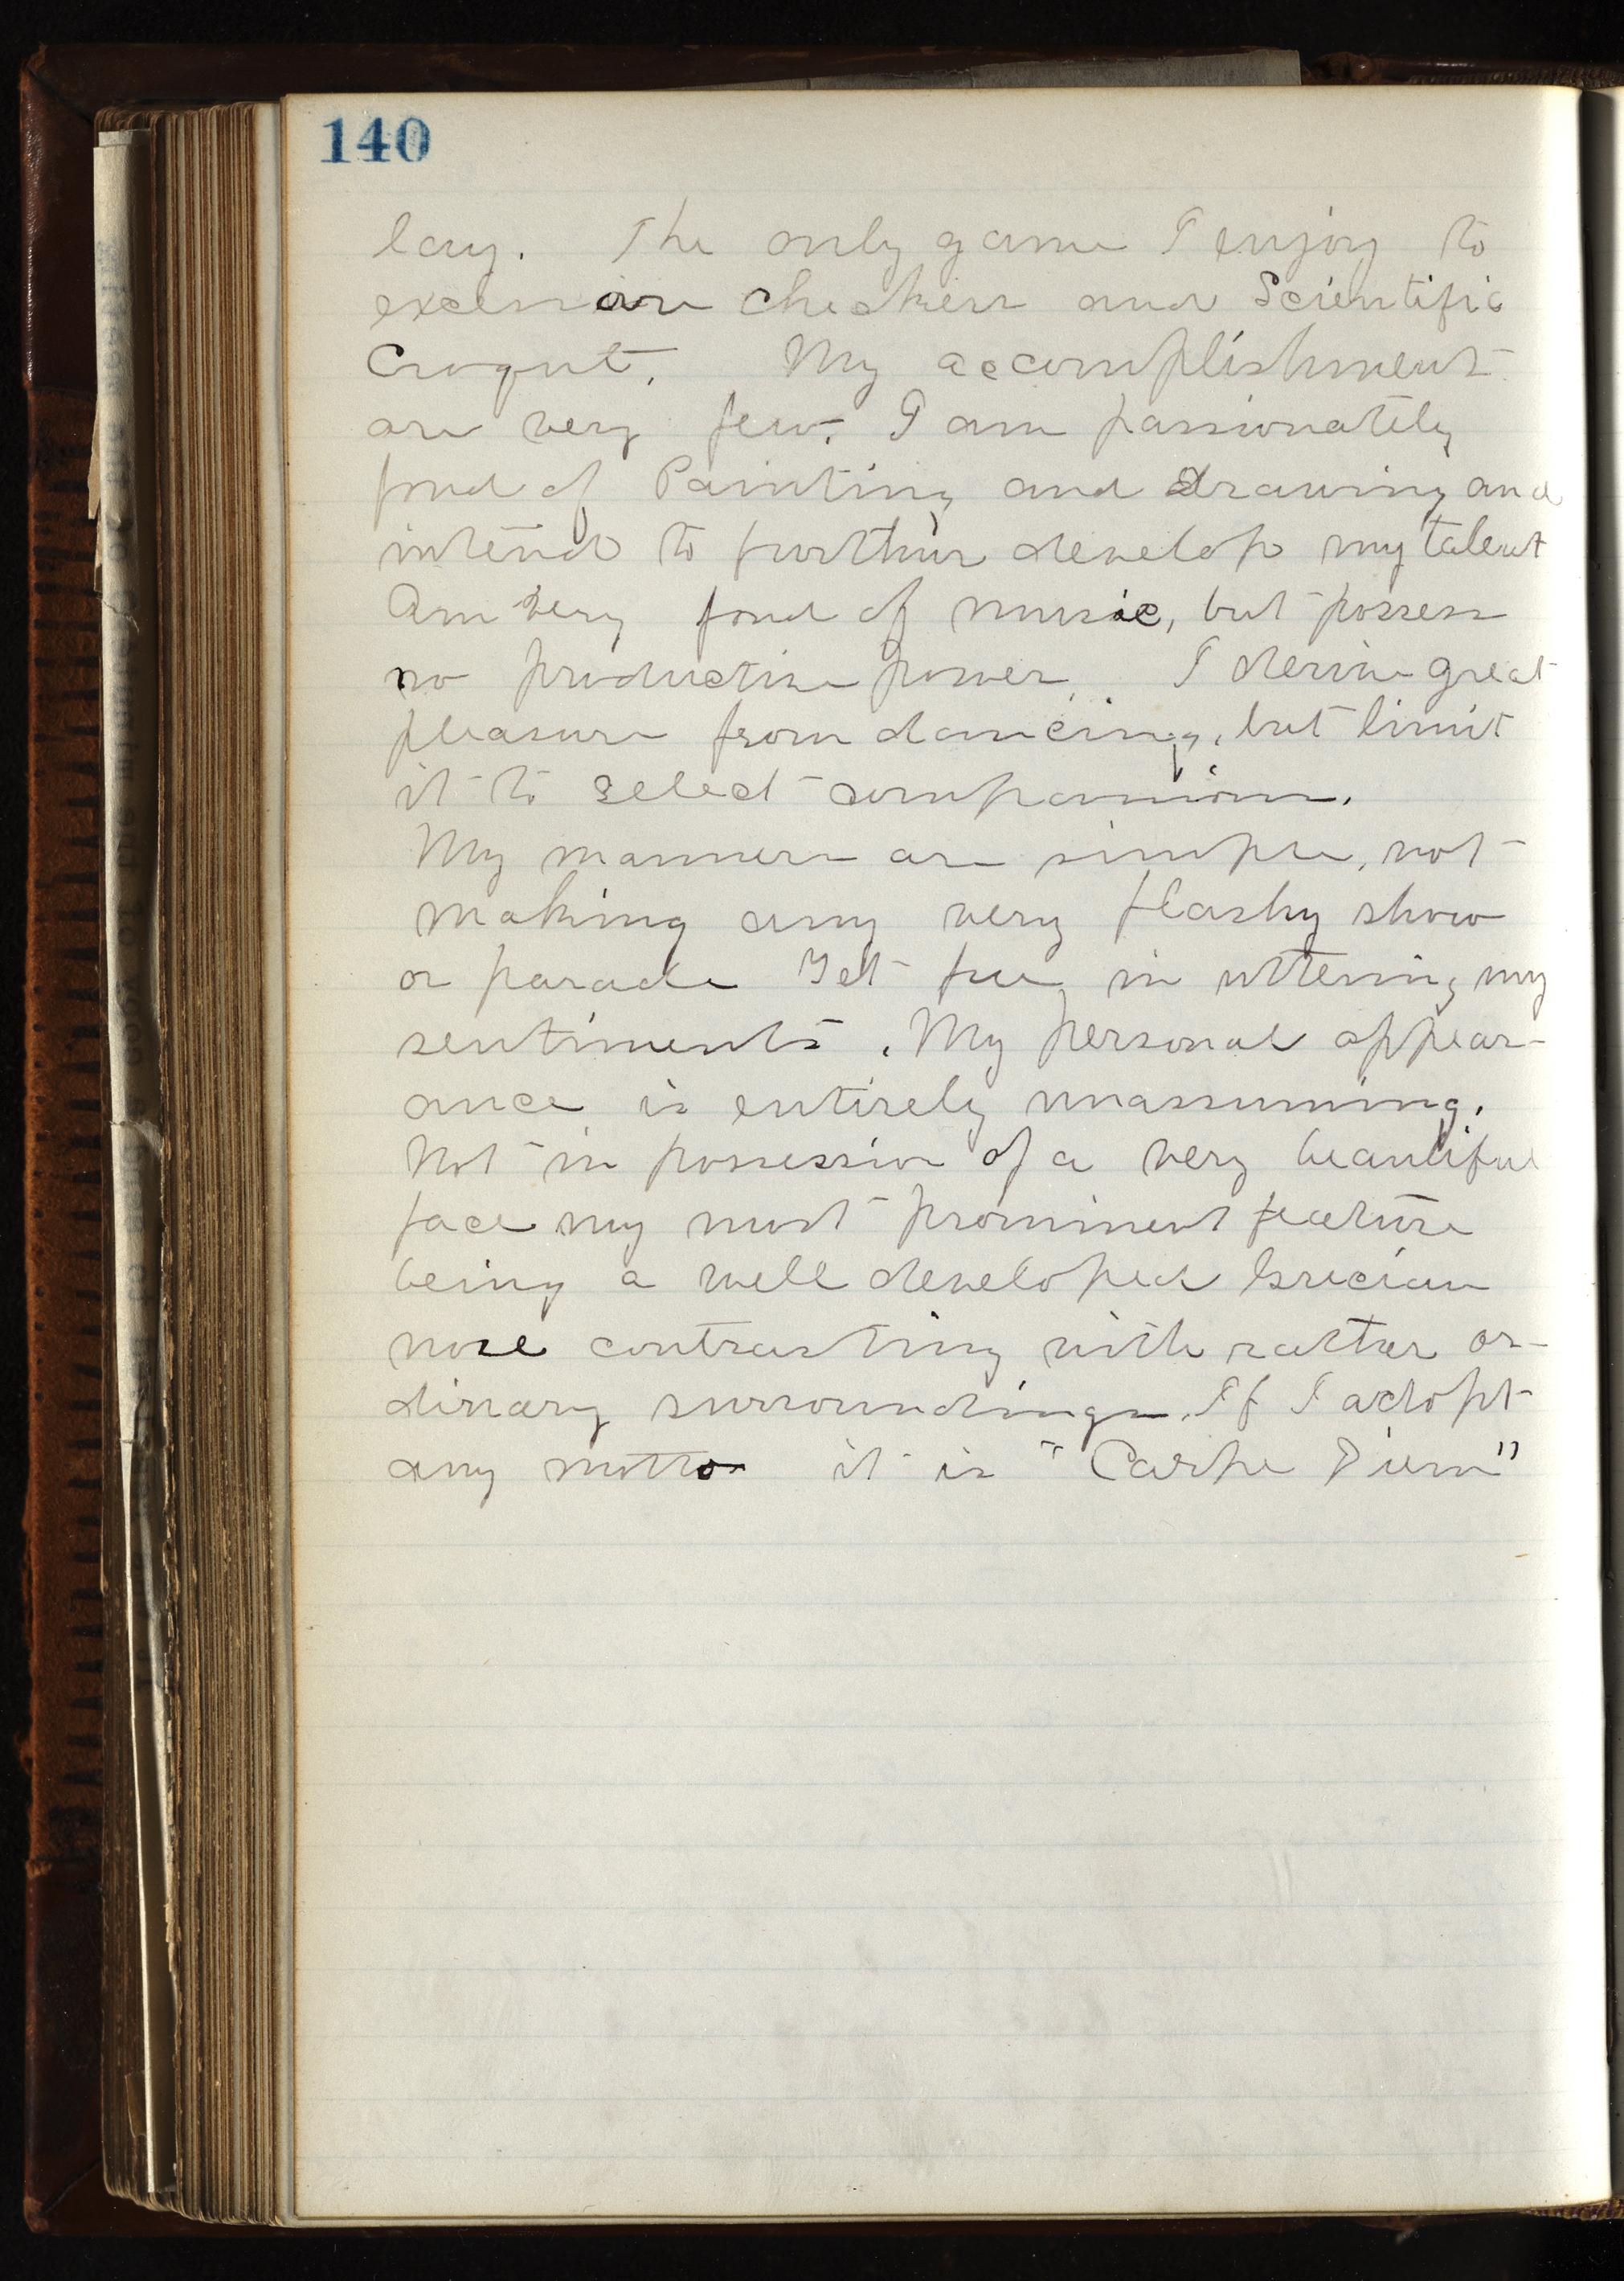 140
lay. The only game I enjoy to
excess are Checkers and Scientific
Croquet. My accomplishments
are very few. I am passionately
fond of Painting and Drawing and
intend to further develop my talent
Am very fond of music, but possess
no productive power. I derive great
pleasure from dancing, but limit
it to select companions.
My manners are simple, not
making any very flashy show
or parade Yet free in uttering my
sentiments. My personal appear-
ance is entirely unassuming.
Not in possession of a very beautiful
face my most prominent feature
being a well developed Grecian
nose contrasting with rather or-
dinary surroundings. If I adopt
any motto it is "Carpe Diem"